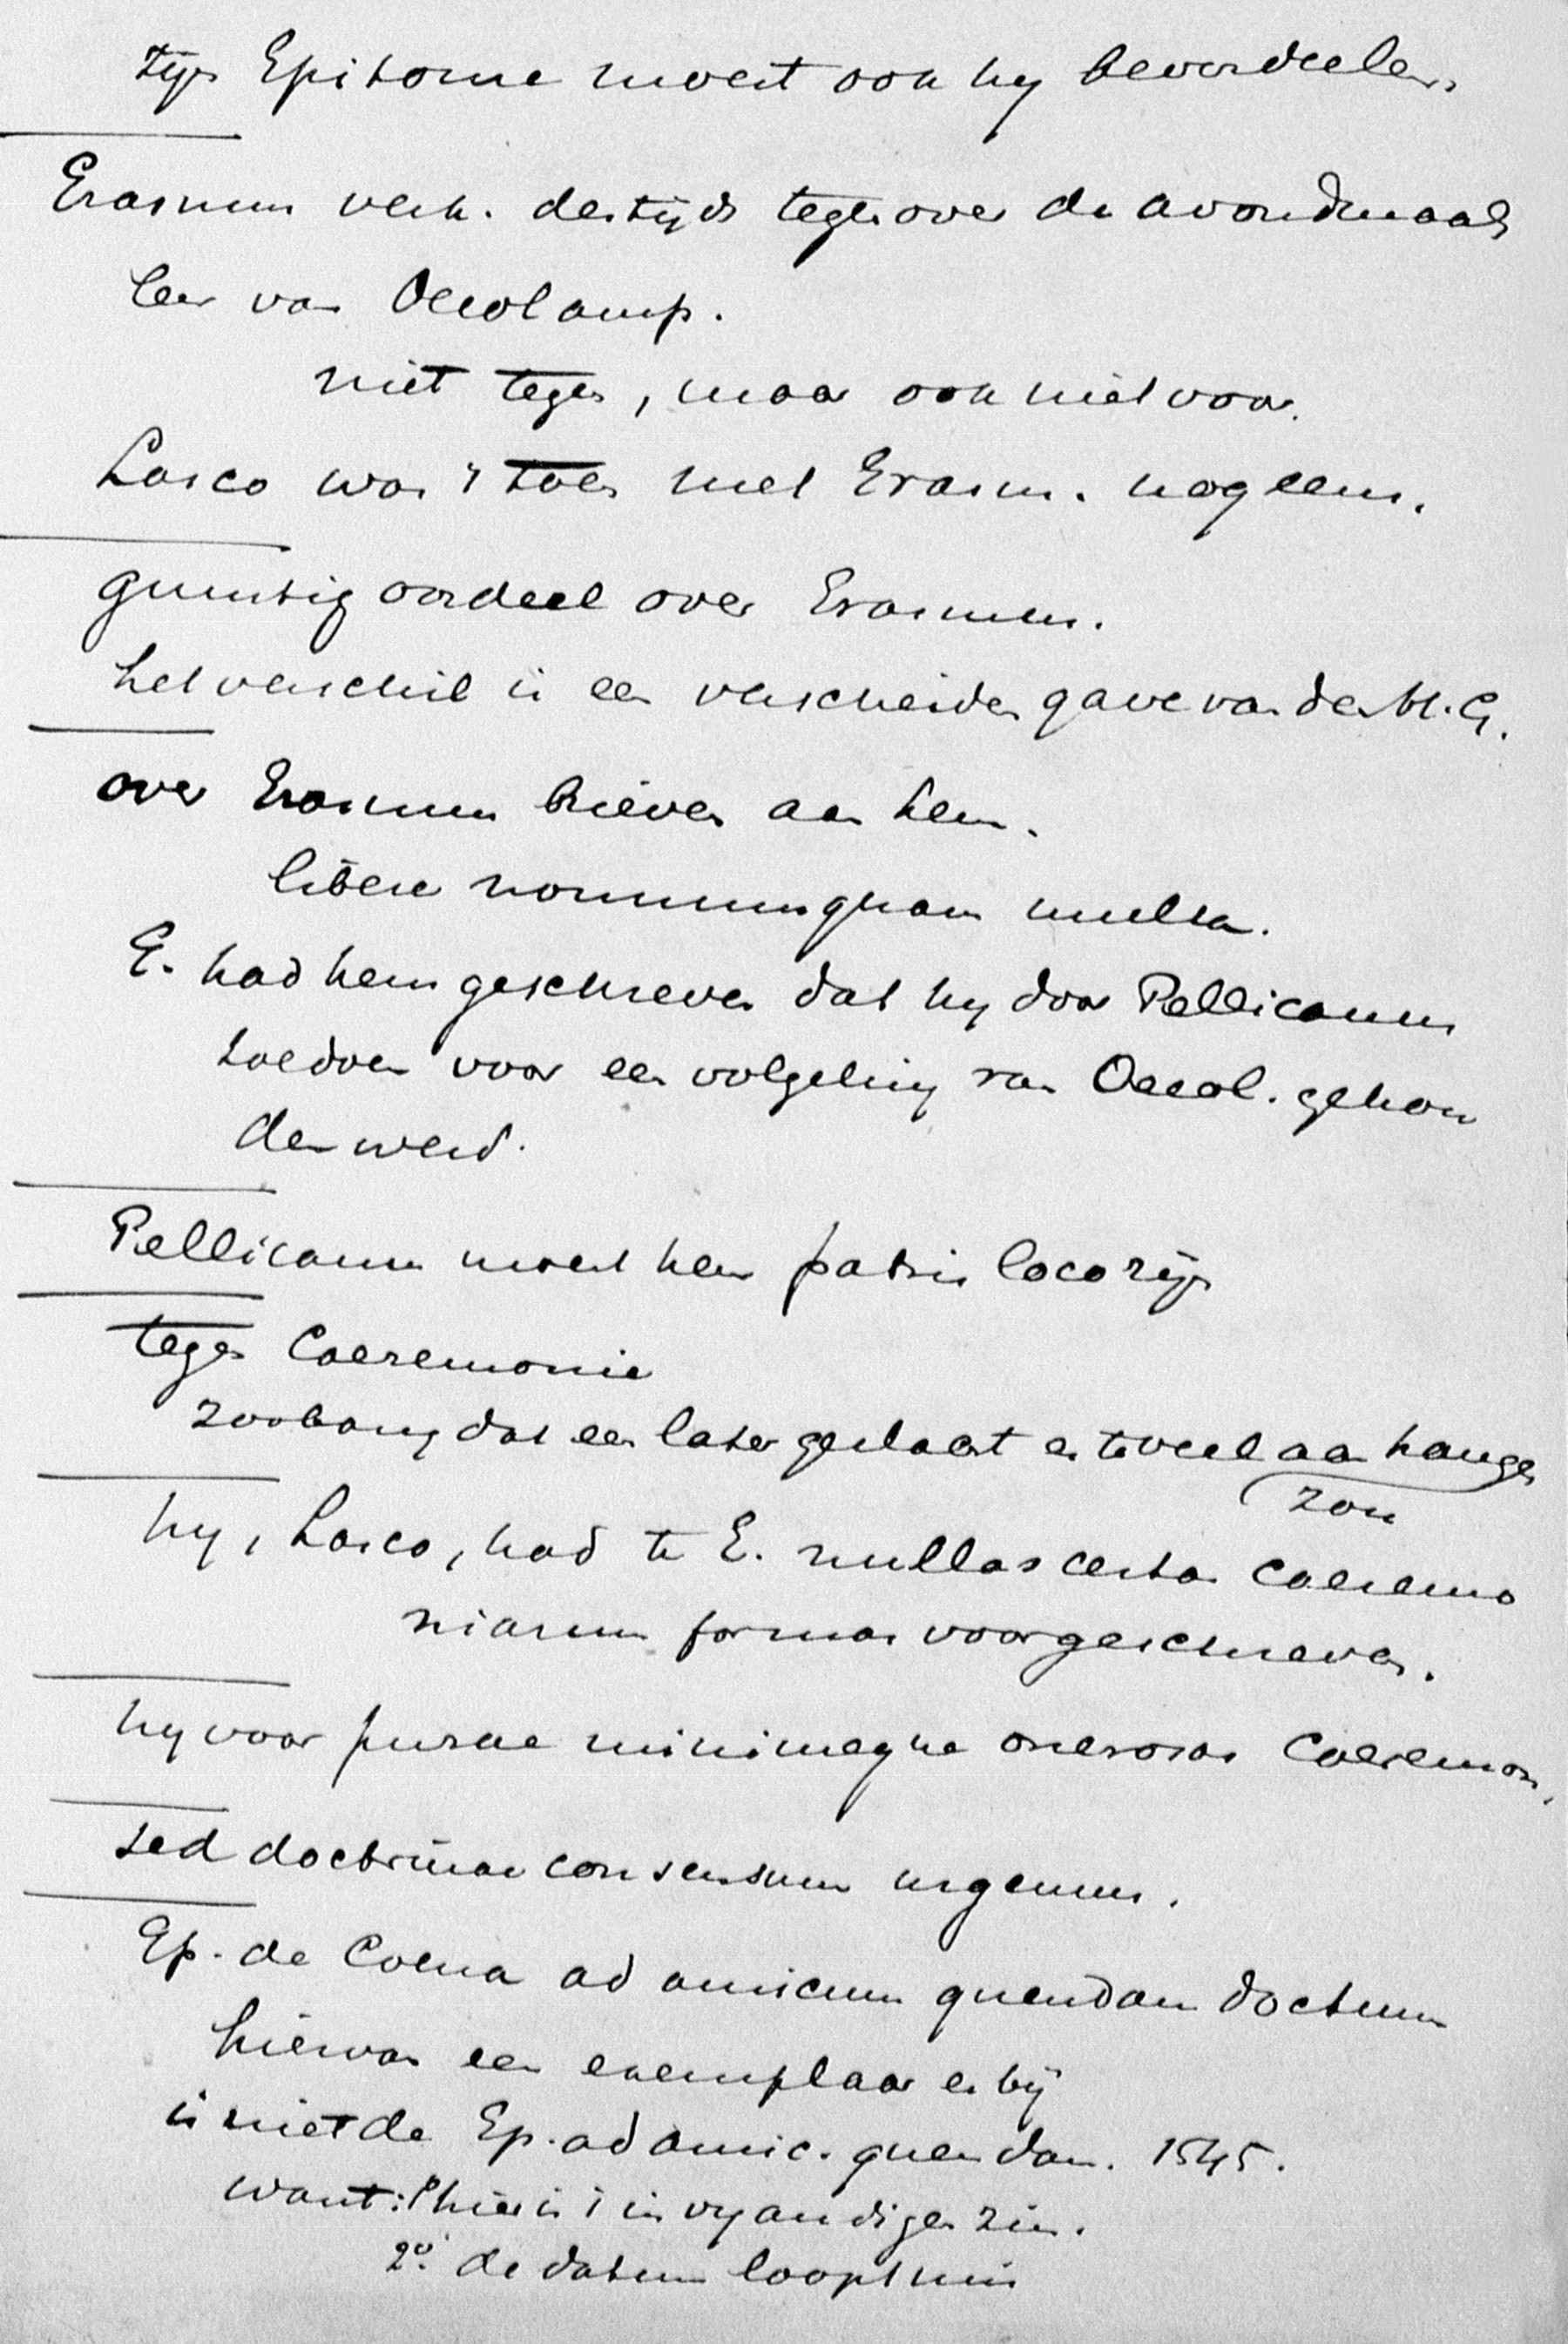 zijn Epitome moest ook hy beoordeelen.
Erasmus verh. destijds tegenover de avondmaals
leer van Oecolamp.
niet tegen, maar ook niet voor.
Lasco was 't toen met Erasm. nog eens.
gunstig oordeel over Erasmus.
het verschil is een verscheiden gave van den H. G.
over Erasmus brieven aan hem.
libere nonnunquam multa.
E. had hem geschreven dat hy door Pellicanus
toedoen voor een volgeling van Oecol. gehou
den werd.
Pellicanus moest hem patris loco zijn
tegen Caeremonie
zoo bang dat een later geslacht er te veel aan hangen
zou
hy, Lasco, had te E. nullas certas caeremo
niarum formas voorgeschreven.
hy voor purae minimeque onerosas Caeremon.
sed doctrinae consensum urgemus.
Ep. de Coena ad amicum quendam doctum
hiervan een exemplaar er bij
is niet de Ep. ad amic. quendam. 1545.
want: 1 hier is 't in vyandigen zin.
2o. de datum loopt mis